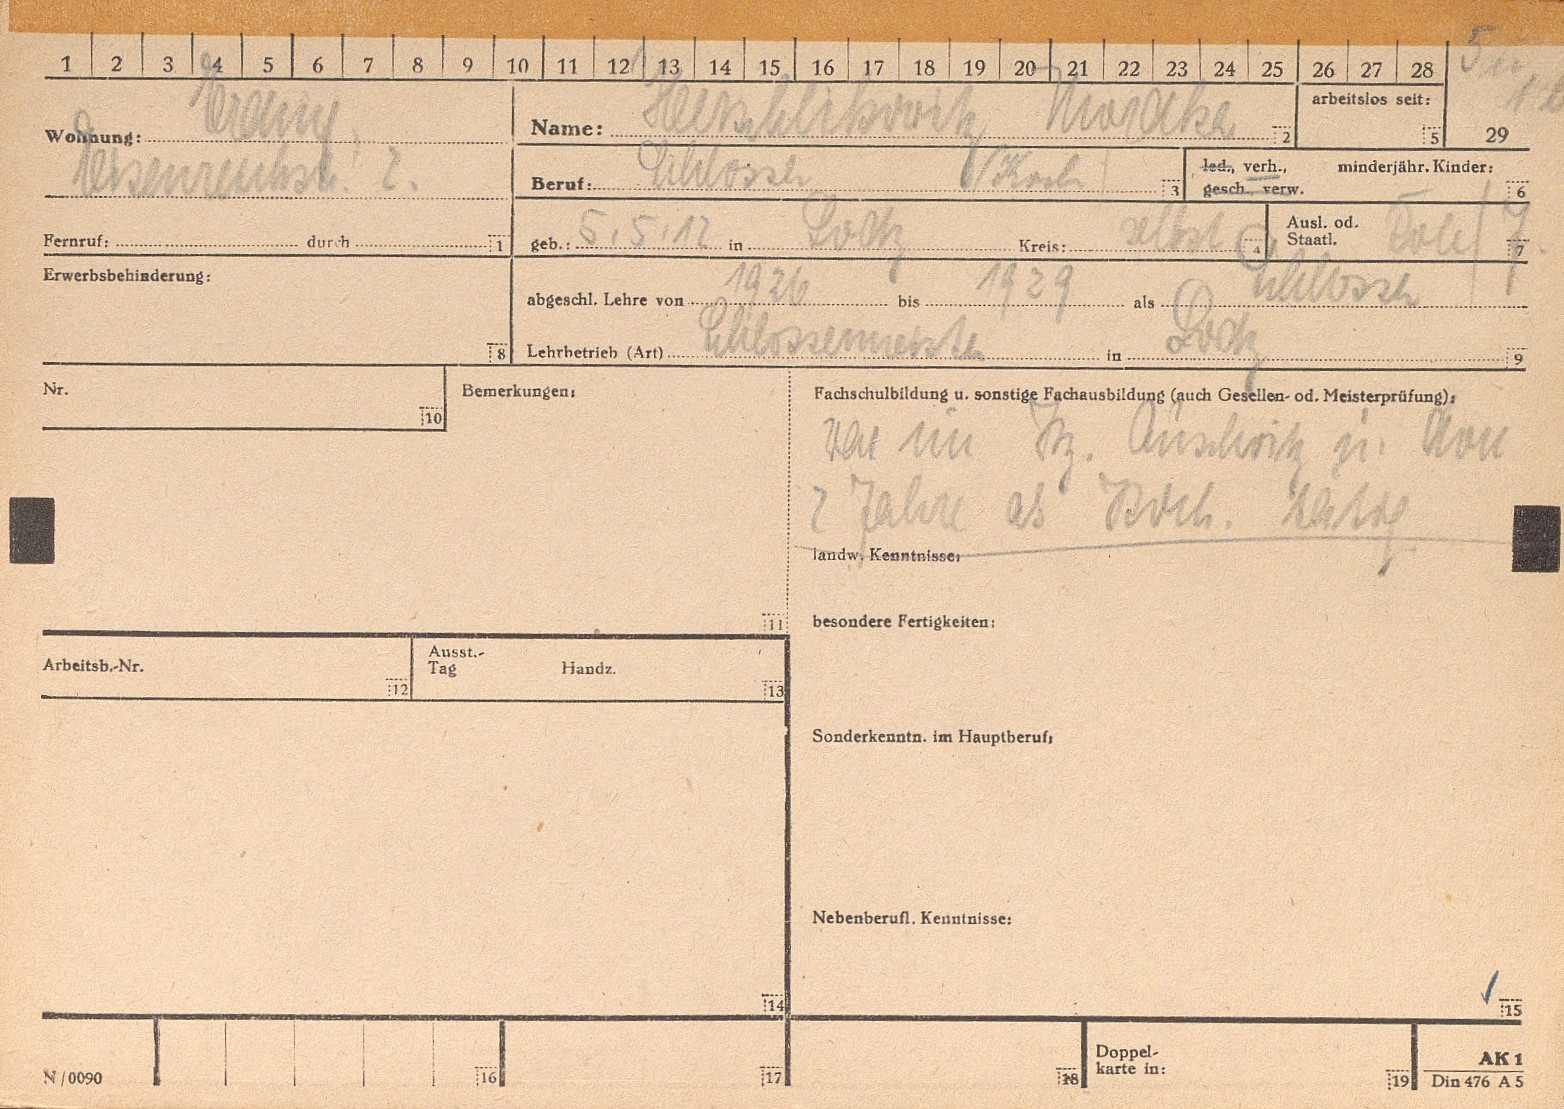 1 2 3 4 5 6 7 8 9 10 11 12 13 14 15 16 17 18 19 20 21 22 23 24 25 26 27 28
Wohnung: Erding
Eisenreichstr. 2.
Name: Herschlikowitz Mordka 2
arbeitslos seit: 5
29
Beruf: Schlosser /Koch/ 3
led., verh., gesch. verw.
minderjähr. Kinder: 6
Fernruf: durch 1
geb.: 5.5.12 in Lodz Kreis: selbst 4
Ausl. od. Staatl. Pole/J. 7
Erwerbsbehinderung: 8
abgeschl. Lehre von 1926 bis 1929 als Schlosser
Lehrbetrieb (Art) Schlossermeister in Lodz 9
Nr. 10
Bemerkungen: 11
Fachschulbildung u. sonstige Fachausbildung (auch Gesellen- od. Meisterprüfung):
war im Kz. Auschwitz u. von
2 Jahre als Koch. tätig
landw. Kenntnisse:
besondere Fertigkeiten:
Arbeitsb.-Nr. 12
Ausst.-Tag Handz. 13
Sonderkenntn. im Hauptberuf:
Nebenberufl. Kenntnisse:
14
15
N/0090
16
17
18
Doppel-
karte in: 19
AK 1
Din 476 A 5